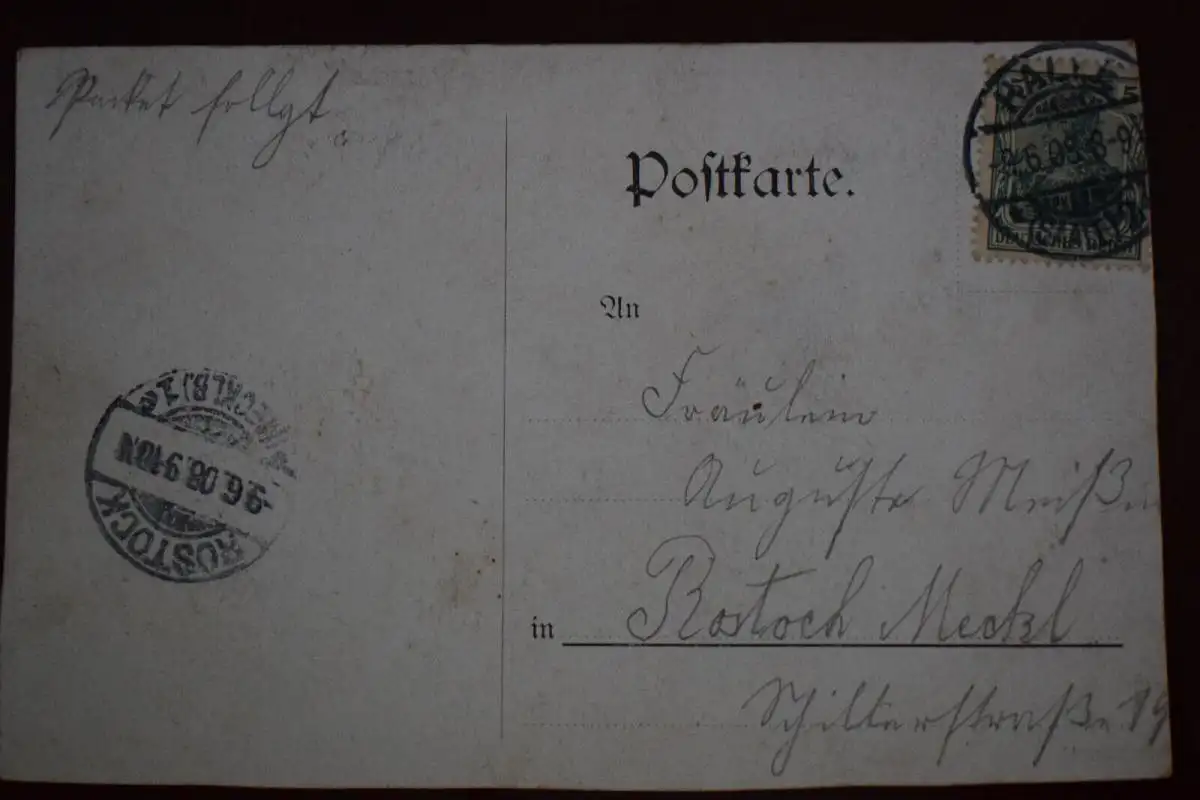 Packet follgt.
Postkarte.
HALLE
-9.6.08.8-9V
(SAALE)
DEUTSCHES REICH
5
An
Fräulein
Auguste Meißn
in Rostock Meckl
Schillerstraße 19
ROSTOCK
-9.6.08.9-10N
(MECKLB.) 1